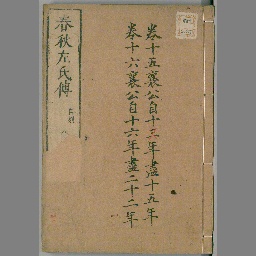 春秋左氏傳
卷十五襄公自十三年盡十五年
卷十六襄公自十六年盡二十二年